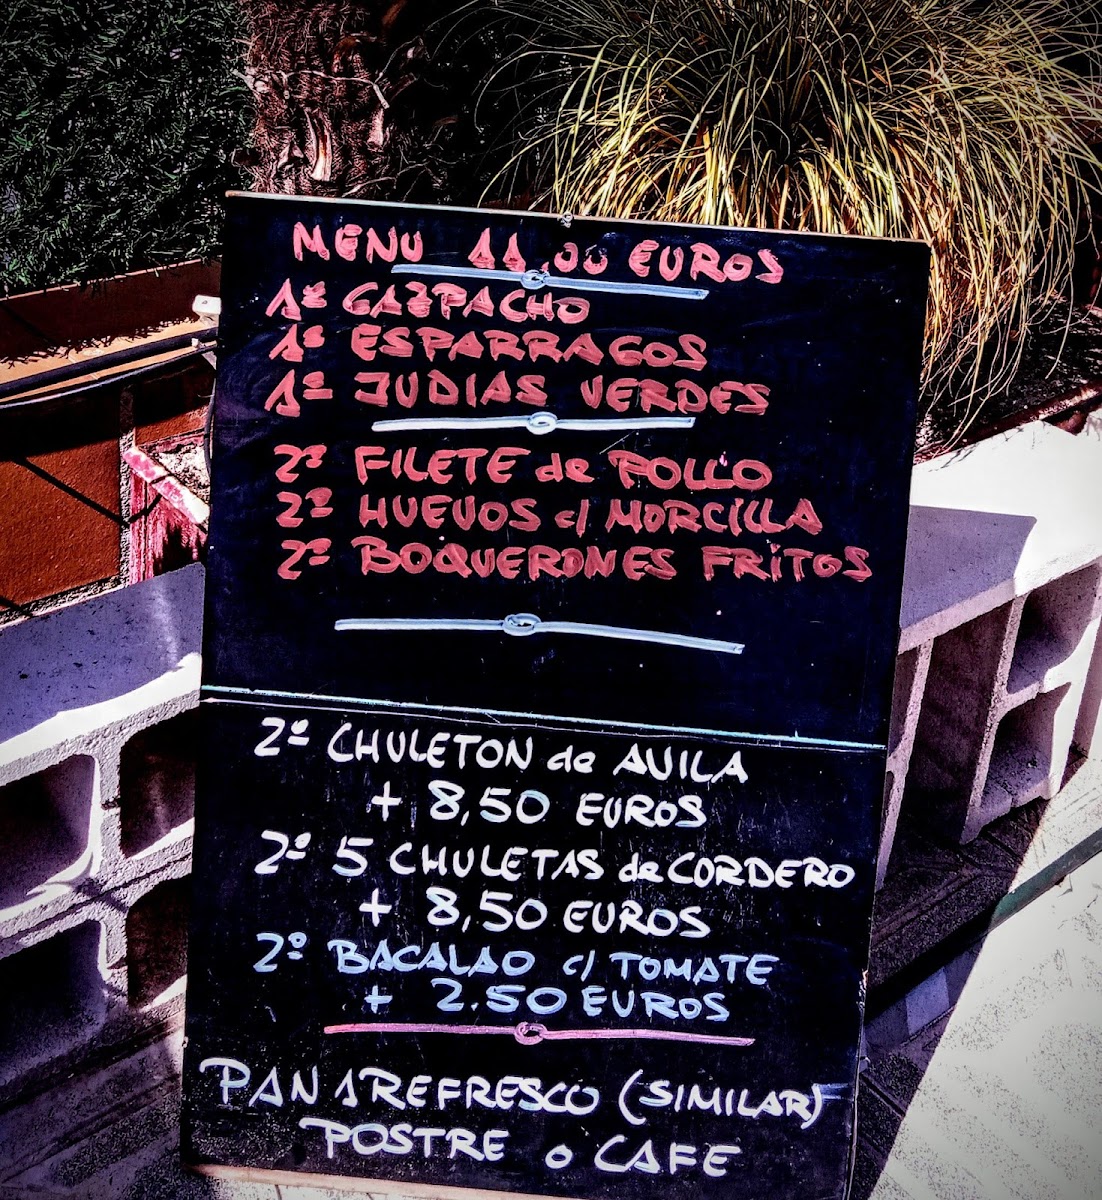 MENU 11,00 EUROS
1º GAZPACHO
1º ESPARRAGOS
1º JUDIAS VERDES
2º FILETE de POLLO
2º HUEVOS c/ MORCILLA
2º BOQUERONES FRITOS
2º CHULETON de AVILA
+ 8,50 EUROS
2º 5 CHULETAS de CORDERO
+ 8,50 EUROS
2º BACALAO c/ TOMATE
+ 2.50 EUROS
PAN 1 REFRESCO (SIMILAR)
POSTRE o CAFE